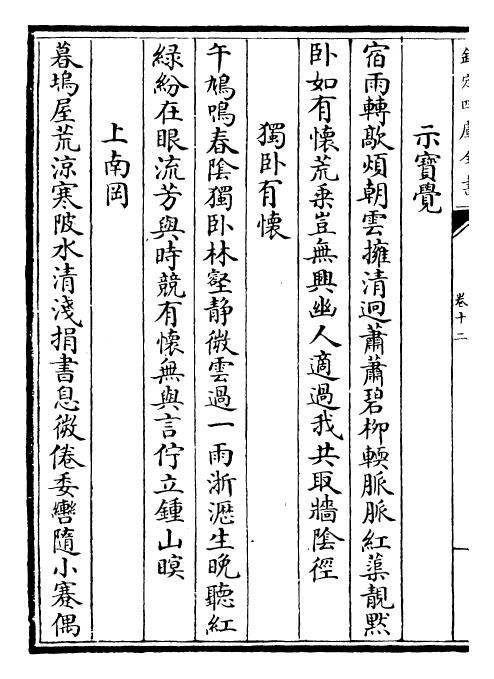 欽定四庫全書
卷十二
示寶覺
宿雨轉歊煩朝雲擁清迥蕭蕭碧柳輭脈脈紅蕖靚黙
卧如有懷荒乗豈無興幽人適過我共取牆陰徑
獨卧有懷
午鳩鳴春陰獨卧林壑静微雲過一雨淅瀝生晚聽紅
緑紛在眼流芳與時競有懷無與言佇立鍾山暝
上南岡
暮塢屋荒凉寒陂水清淺捐書息微倦委轡隨小蹇偶